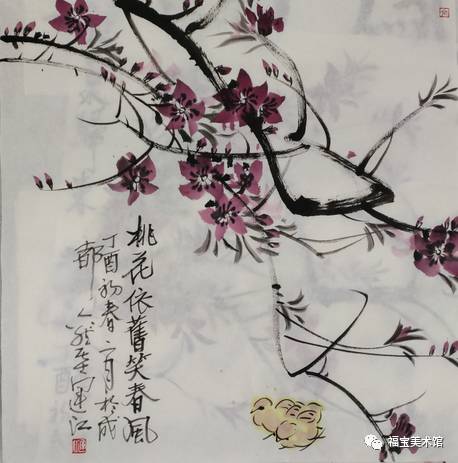 桃花依舊笑春風
丁酉初春二月於成
都 運江
福宝美术馆